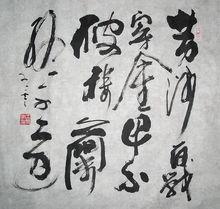 黄沙百戰
穿金甲不
破樓蘭
終不還